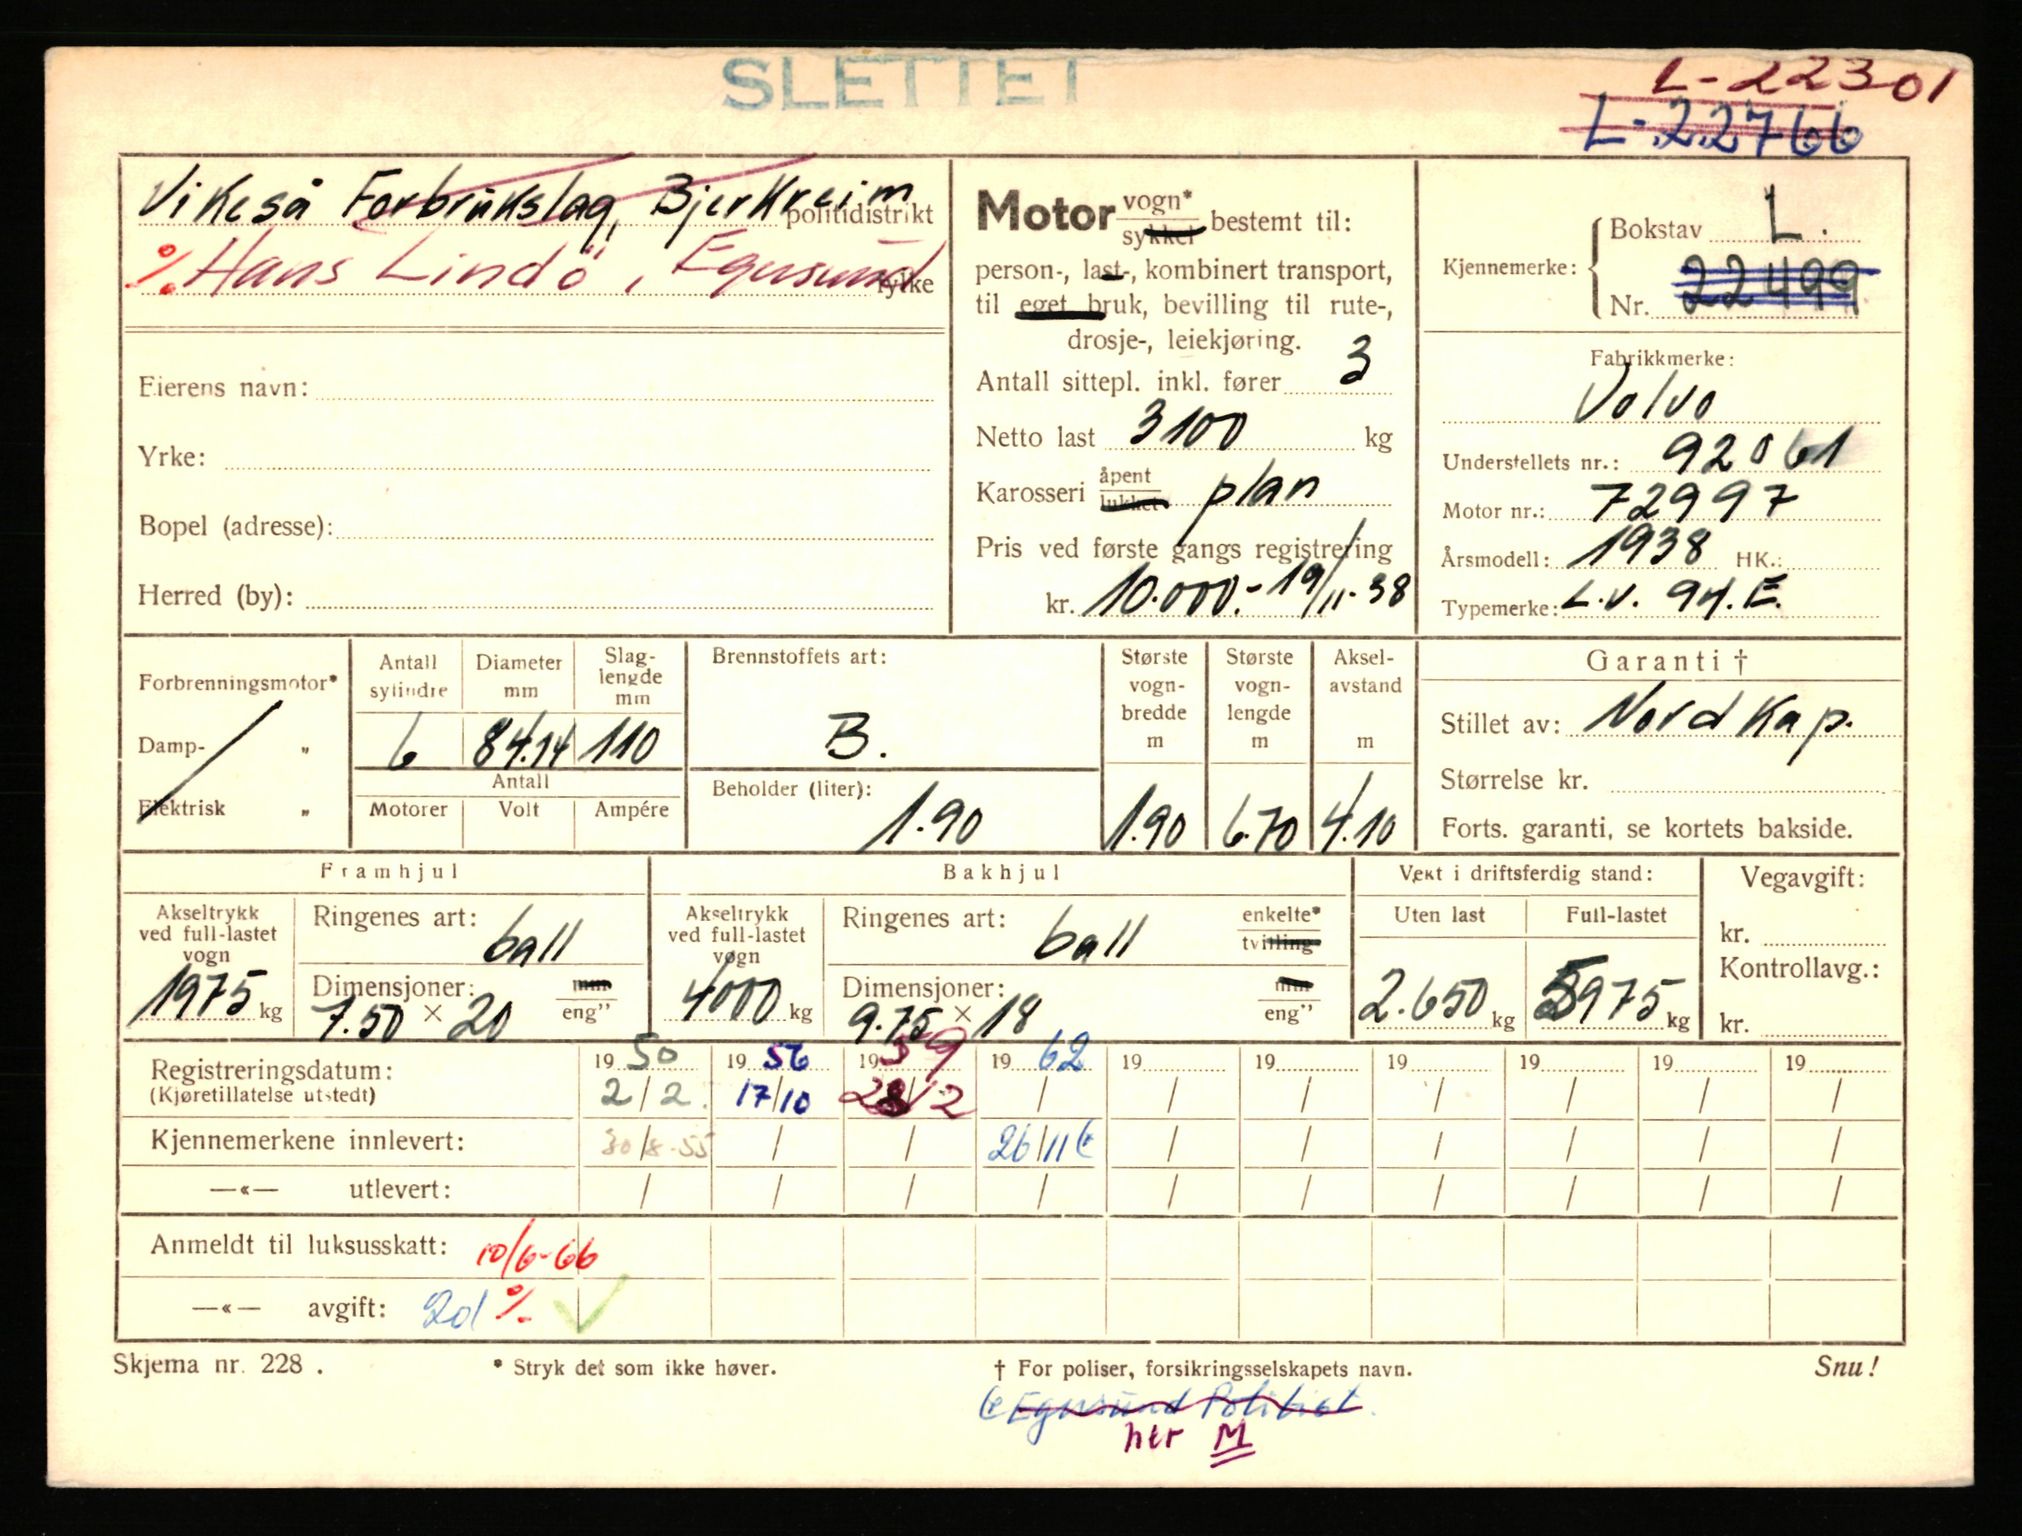 SLETTET
L-22301
L-22766
Vikeså Forbrukslag, Bjerkreim politidistrikt
% Hans Lindö, Egersund fylke
Eierens navn:
Yrke:
Bopel (adresse):
Herred (by):
Motor vogn* sykkel bestemt til:
person-, last-, kombinert transport,
til eget bruk, bevilling til rute-,
drosje-, leiekjøring.
Antall sittepl. inkl. fører 3
Netto last 3100 kg
Karosseri åpent lukket plan
Pris ved første gangs registrering
kr. 10.000.- 19/11-38
Kjennemerke: Bokstav L.
Nr. 22499
Fabrikkmerke:
Volvo
Understellets nr.: 92061
Motor nr.: 72997
Årsmodell: 1938 HK.:
Typemerke: L.V. 94.E.
Forbrenningsmotor*
Damp- "
Elektrisk "
Antall sylindre 6
Diameter mm 84.14
Slag-lengde mm 110
Antall
Motorer Volt Ampére
Brennstoffets art:
B.
Beholder (liter):
1.90
Største vogn-bredde m 1.90
Største vogn-lengde m 6.70
Aksel-avstand m 4.10
Garanti †
Stillet av: Nord Kap.
Størrelse kr.
Forts. garanti, se kortets bakside.
Framhjul
Akseltrykk ved full-lastet vogn 1975 kg
Ringenes art: ball
Dimensjoner: mm eng"
7.50 × 20
Bakhjul
Akseltrykk ved full-lastet vogn 4000 kg
Ringenes art: ball enkelte* tvilling
Dimensjoner: mm eng"
9.75 × 18
Vekt i driftsferdig stand:
Uten last Full-lastet
2.650 kg 5975 kg
Vegavgift:
kr.
Kontrollavg.:
kr.
Registreringsdatum: 19 50 19 56 19 59 19 62 19 19 19 19 19 19
(Kjøretillatelse utstedt) 2/2 17/10 28/2 / / / / / / /
Kjennemerkene innlevert: 30/8-55 / / 26/11 / / / / / /
—«— utlevert: / / / / / / / / / /
Anmeldt til luksusskatt: 10/6-66
—«— avgift: %
Skjema nr. 228 .
* Stryk det som ikke høver.
† For poliser, forsikringsselskapets navn.
Snu!
Egersund Politist.
her M